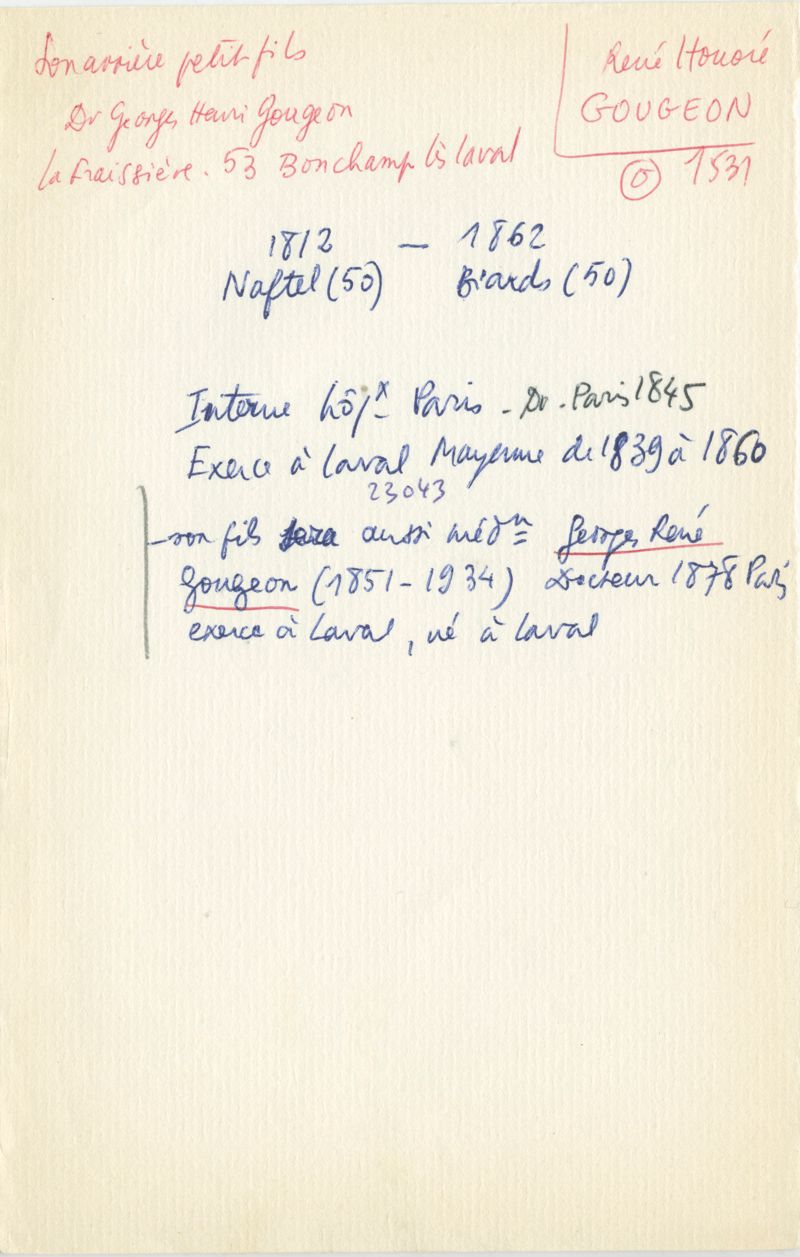 Son arrière petit fils
Dr Georges Henri Gougeon
la Fraissière. 53 Bonchamp lès Laval
René Honoré
GOUGEON
1531
1812 — 1862
Naftel (50) Biards (50)
Interne hôpx Paris - Dr. Paris 1845
Exerce à Laval Mayenne de 1839 à 1860
23043
- son fils sera aussi médn Georges René
Gougeon (1851-1934) Docteur 1878 Paris
exerce à Laval, né à Laval